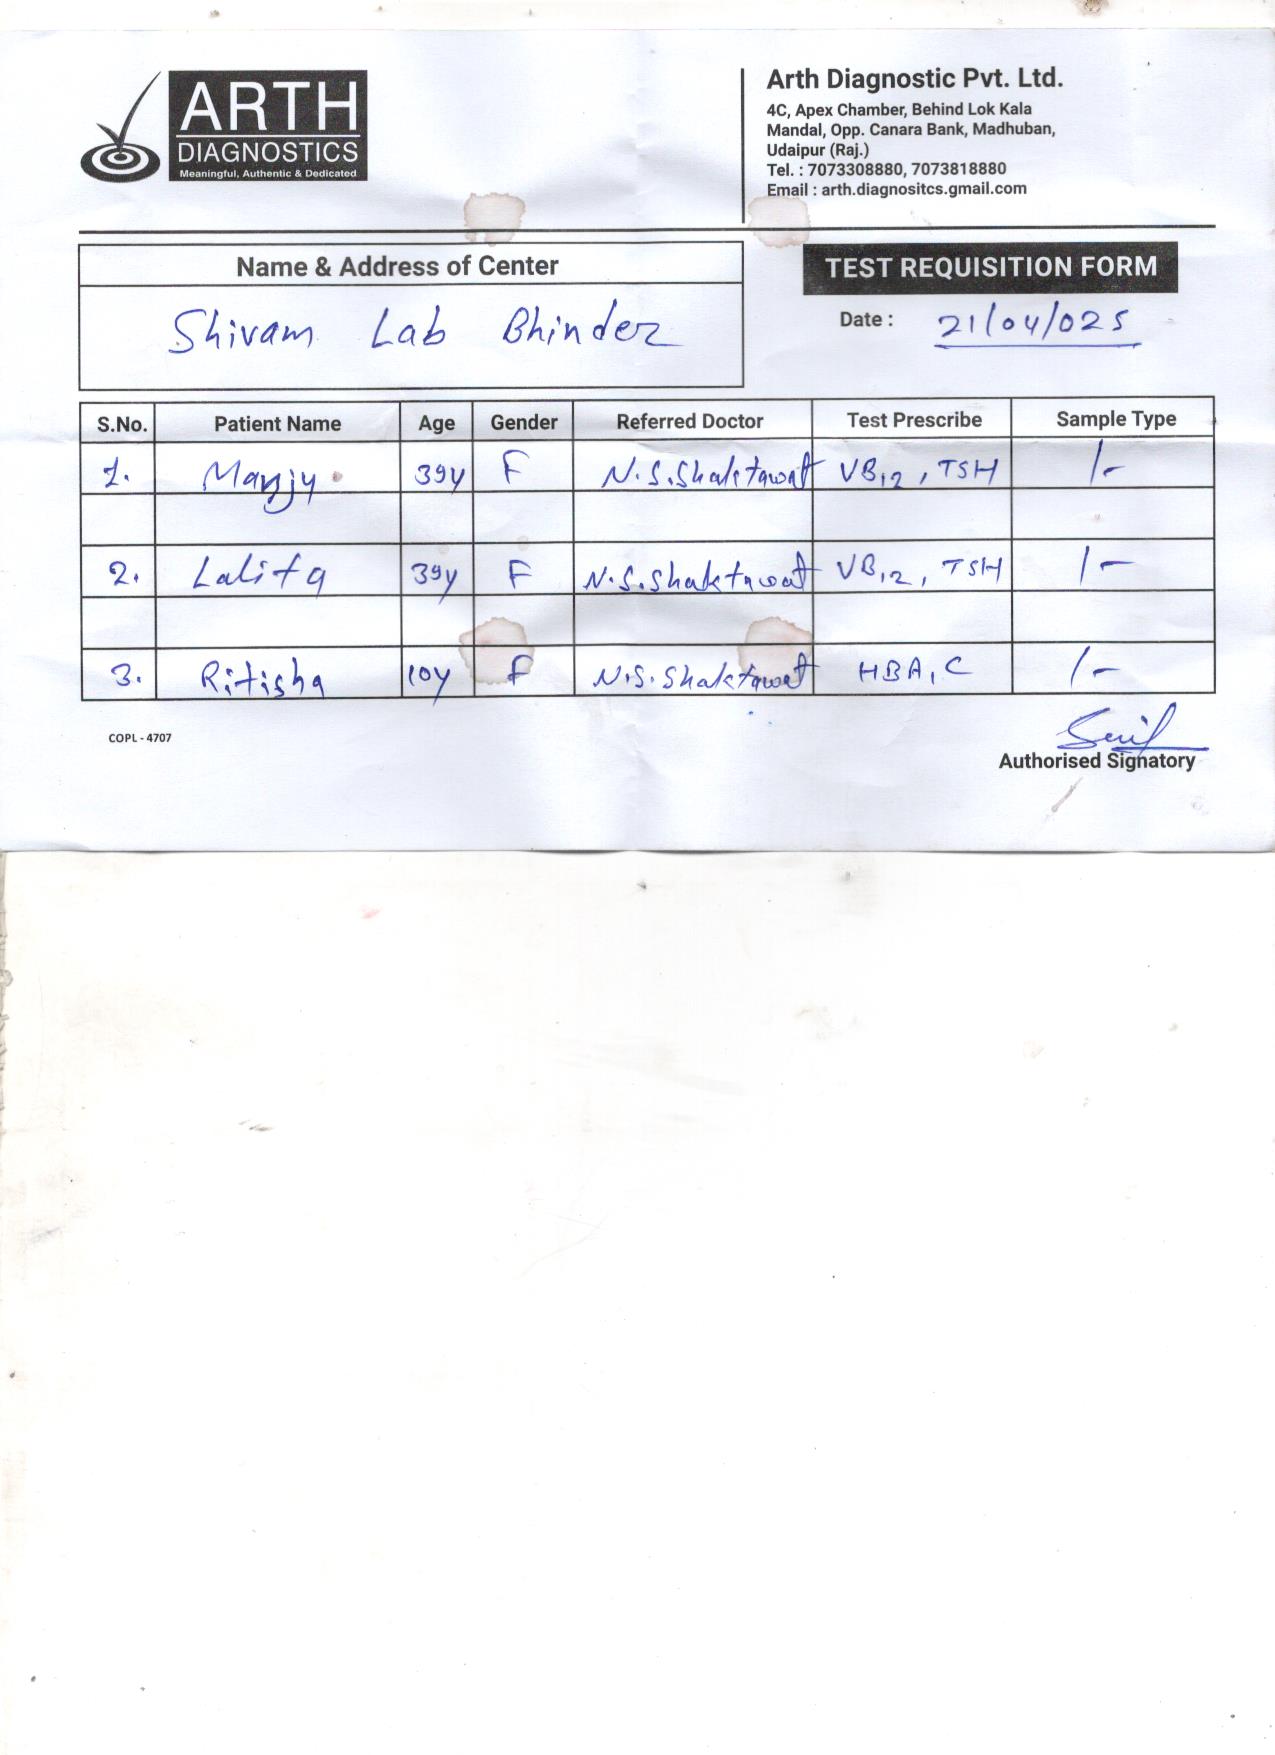 ARTH
DIAGNOSTICS
Meaningful, Authentic & Dedicated
Arth Diagnostic Pvt. Ltd.
4C, Apex Chamber, Behind Lok Kala
Mandal, Opp. Canara Bank, Madhuban,
Udaipur (Raj.)
Tel. : 7073308880, 7073818880
Email : arth.diagnositcs.gmail.com
Name & Address of Center
Shivam Lab Bhinder
TEST REQUISITION FORM
Date : 21/04/025
S.No. Patient Name Age Gender Referred Doctor Test Prescribe Sample Type
1. Manju 39y F N.S.Shaktawat VB12, TSH 1-
2. Lalita 39y F N.S.Shaktawat VB12, TSH 1-
3. Ritisha 10y F N.S.Shaktawat HBA1C 1-
COPL - 4707
Authorised Signatory